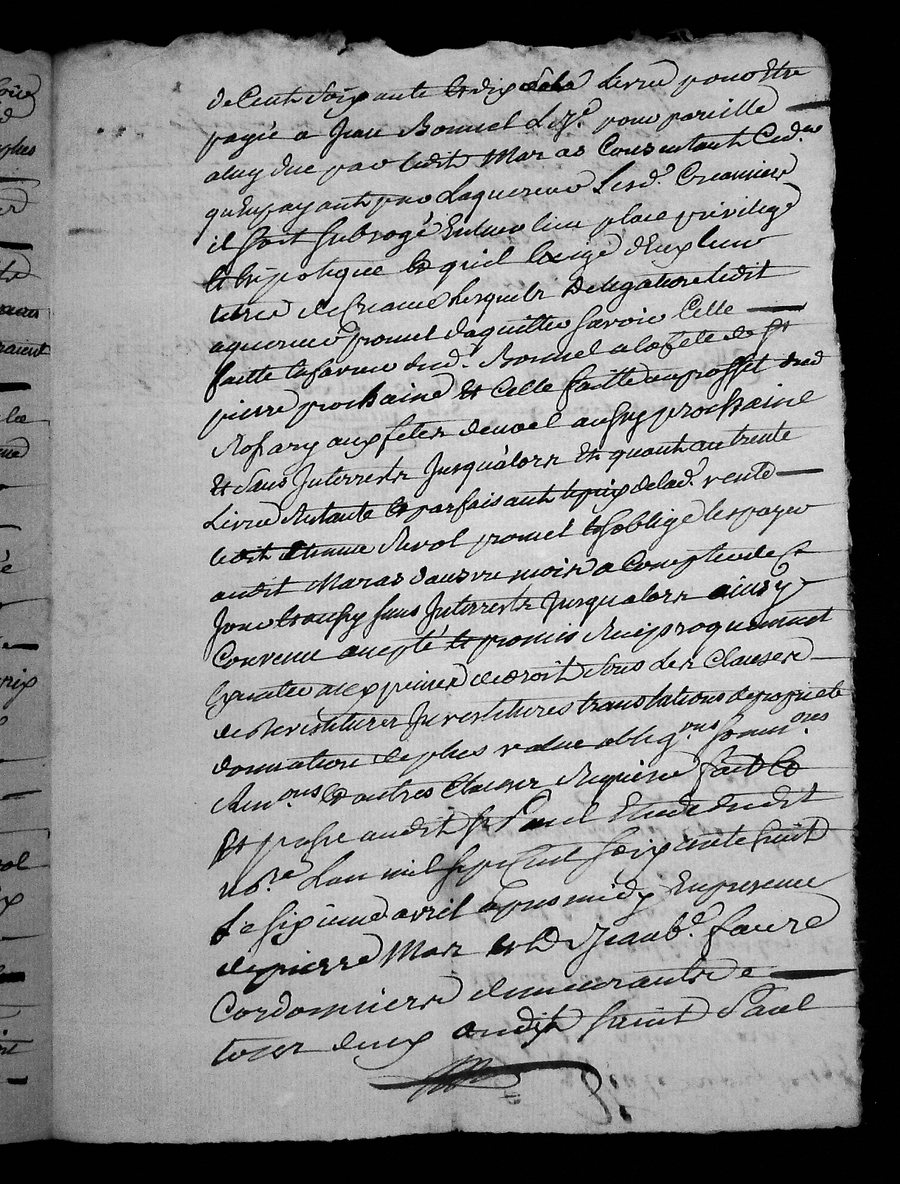 de Cent soixante et dix Livres pour Etre
payée a Jean Bonnet pour pareille
a luy due par ledit Maras Consentant
qu'En payant par Laquereur Lesd. Creanciers
il soit subrogé En leur lieu place privilege
et hipotique et quil Exige d'Eux leur
titre de Creance lesquels delegations ledit
aquereur promet daquitter savoir Celle
faitte en faveur dud. Bonnet a la fete de St
pierre prochaine et Celle faitte au proffit dud
Rosary aux fetes de noel aussy prochaine
et sans Interrets Jusqu'alors et quant au trente
Livres Restante et parfaisant le prix de lad. vente
ledit Etienne Revol promet et soblige les payer
audit Maras dans un mois a Compter de Ce
Jour et aussy sans Interrets Jusqualors ainsy
Convenu accepté et promis Reciproquement
a peines de droit sous les Clauses
de devestitures Investitures translations de proprieté
donnation de plus value obligons soumons
Renons et autres Clauses Requises fait
et passé audit St Paul Etude dudit
nore Lan mil sept Cent soixante huit
Le six avril apres midy En presence
de pierre Mar et de Jean be faure
Cordonniers demeurants
tous deux audit saint Paul